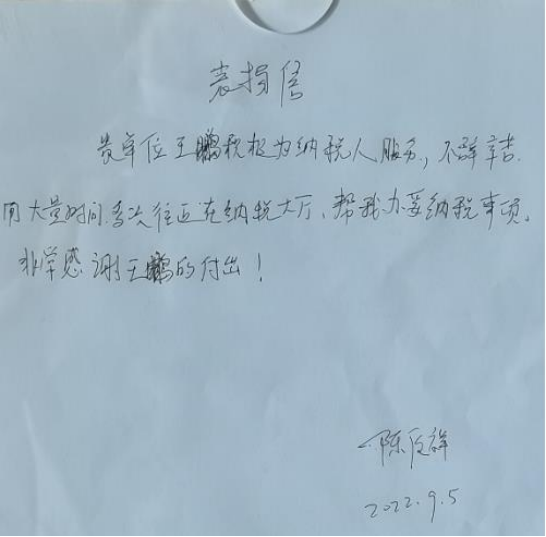 表捐信
贵单位王鹏积极为纳税人服务,不辞辛苦.
用大量时间.多次往返在纳税大厅、帮我办妥纳税事项,
非常感谢王鹏的付出!
陈反祥
2022.9.5